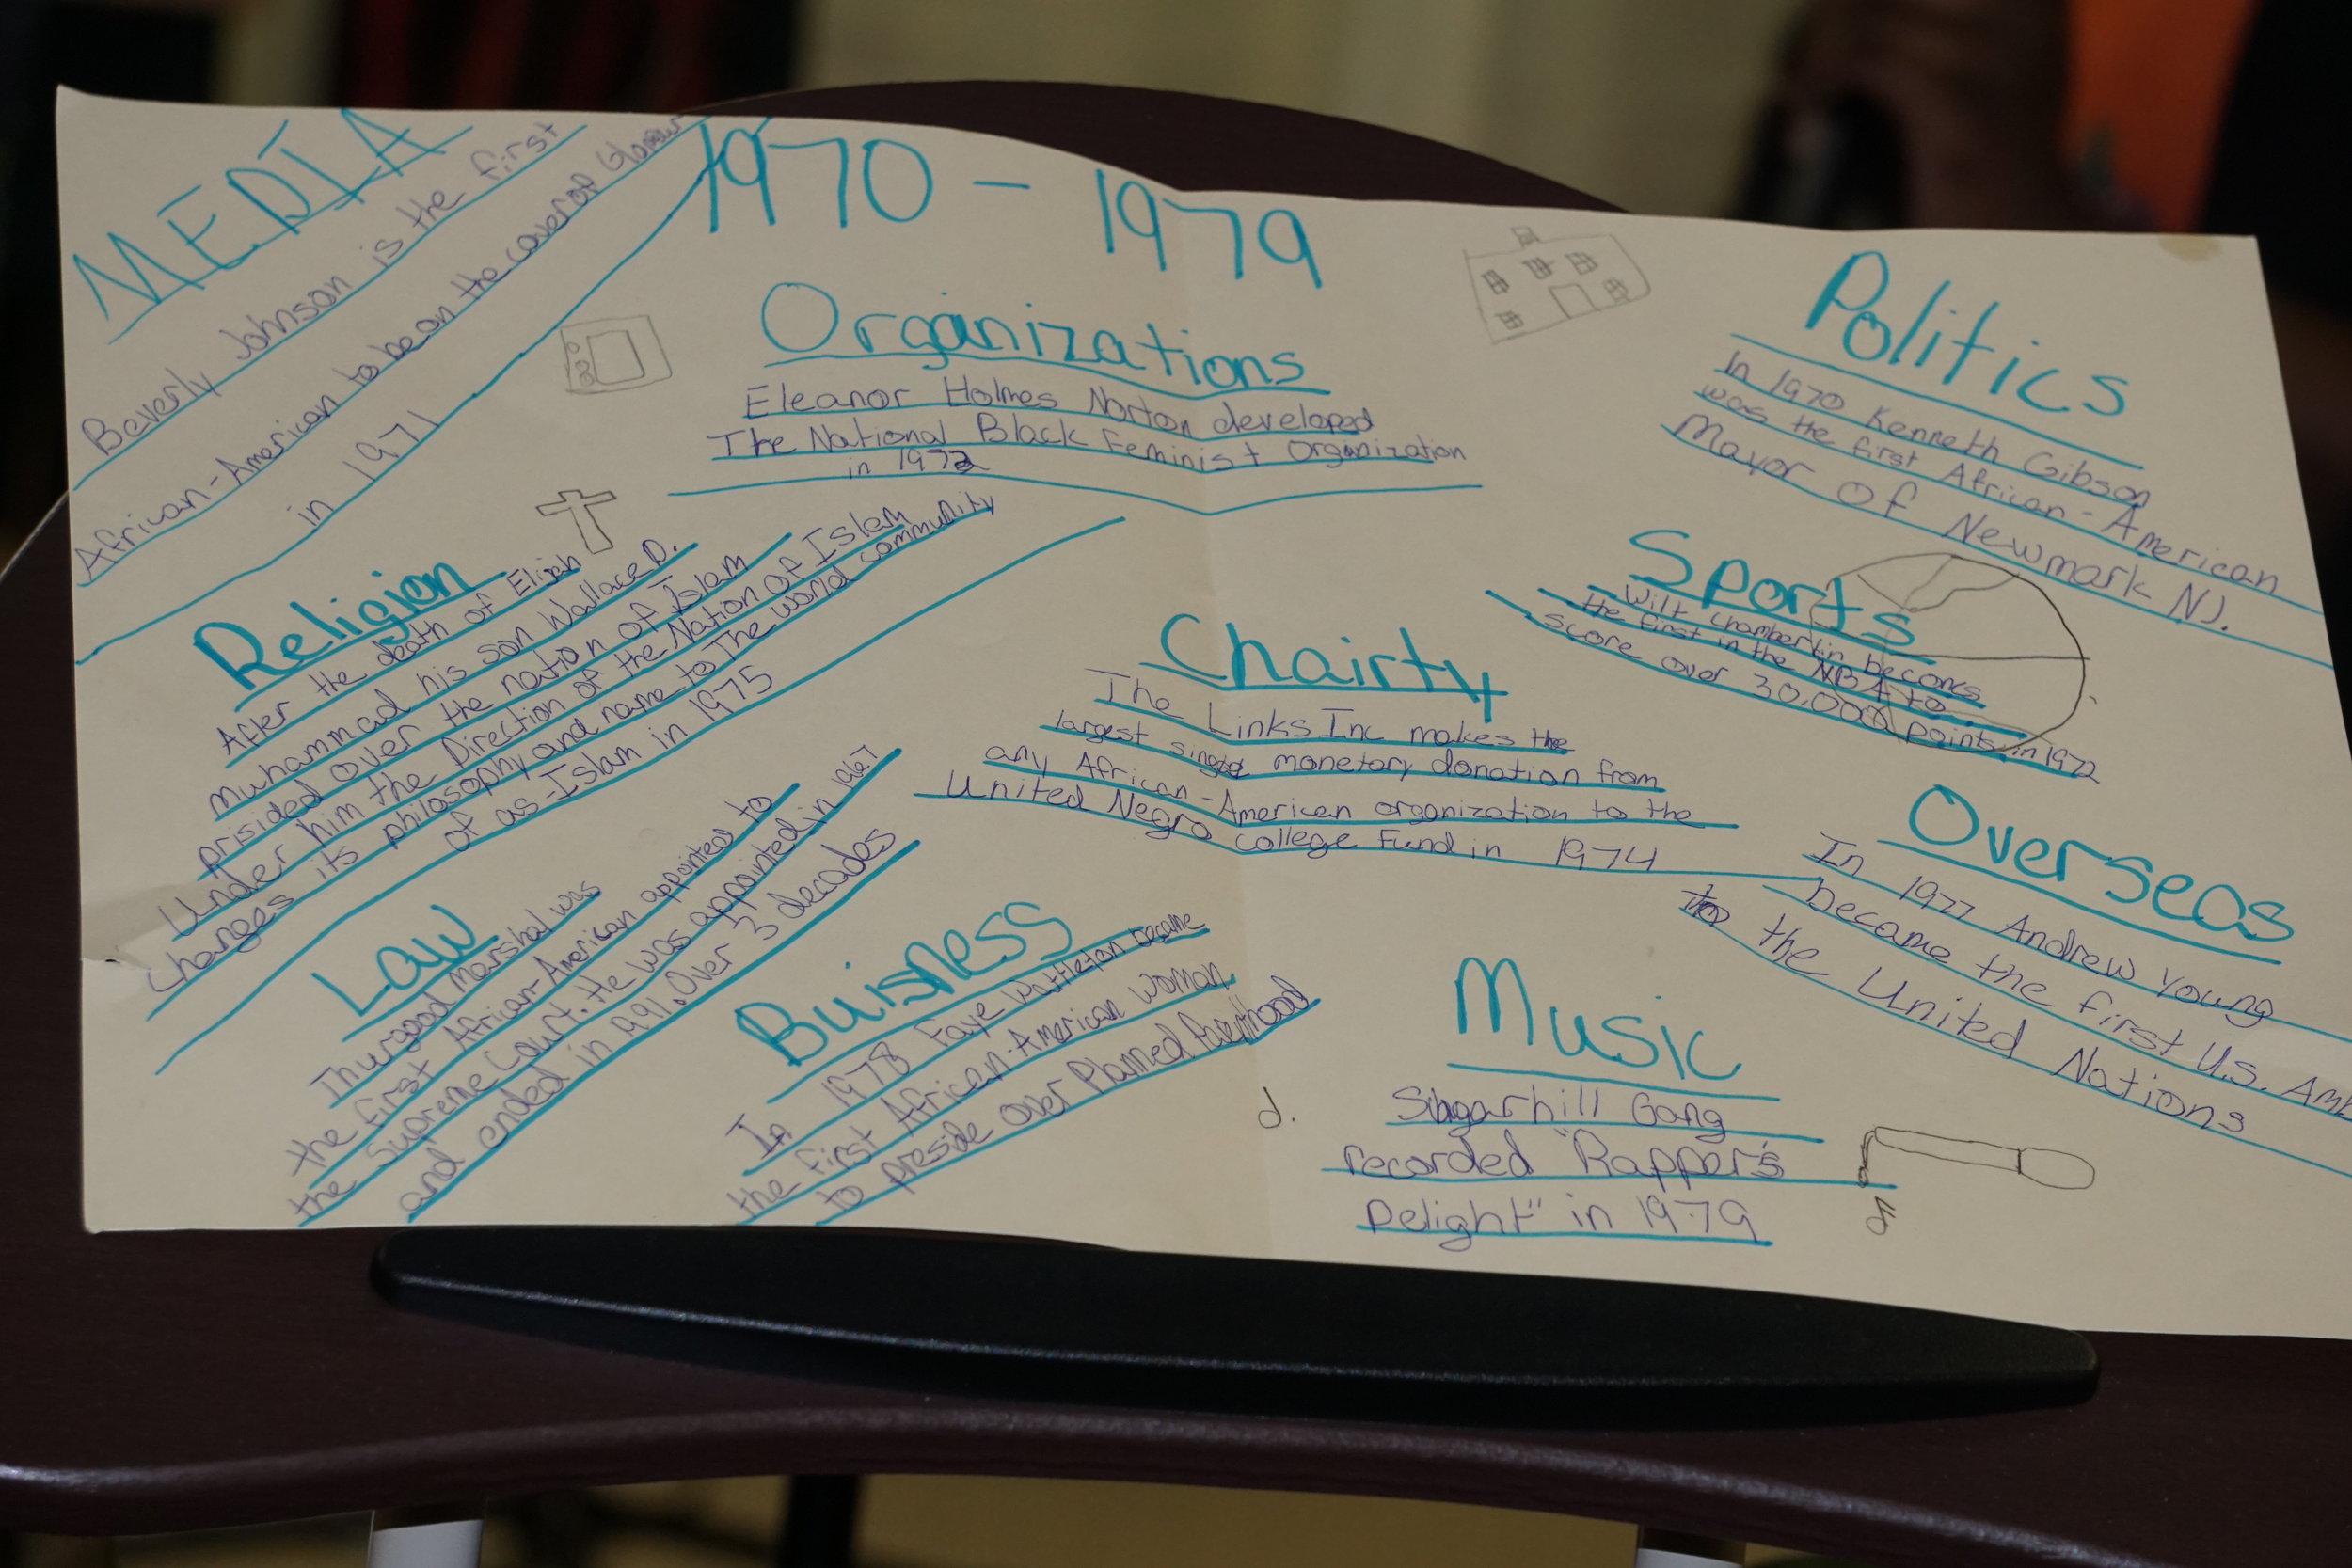 MEDIA
Beverly Johnson is the first
African-American to be on the cover of Glamour
in 1971
1970 - 1979
Organizations
Eleanor Holmes Norton developed
The National Black Feminist Organization
in 1972
Politics
In 1970 Kenneth Gibson
was the first African-American
Mayor of Newmark NJ.
Religion
After the death of Elijah
Muhammad his son Wallace D.
prisided over the nation of Islam
Under him the Direction of the Nation of Islam
changes its philosophy and name to The world community
of as-Islam in 1975
Sports
Wilt Chamberlin becomes
the first in the NBA to
score over 30,000 points in 1972
Chairty
The Links Inc makes the
largest single monetary donation from
any African-American organization to the
United Negro College Fund in 1974
Overseas
In 1977 Andrew Young
became the first U.S. Amb
to the United Nations
Law
Thurgood Marshal was
the first African-American appointed to
the Supreme Court. He was appointed in 1967
and ended in 1991. Over 3 decades
Buisness
In 1978 Faye Wattleton became
the first African-American woman
to preside over Planned Parenthood
Music
Sugarhill Gang
recorded "Rapper's
Delight" in 1979